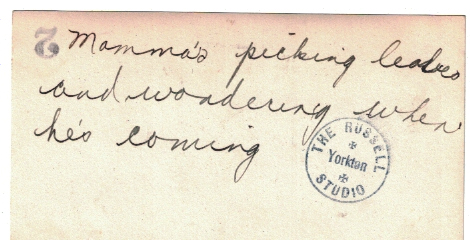 2
Momma's picking leaves
and wondering when
he's coming
THE RUSSELL
Yorkton
STUDIO